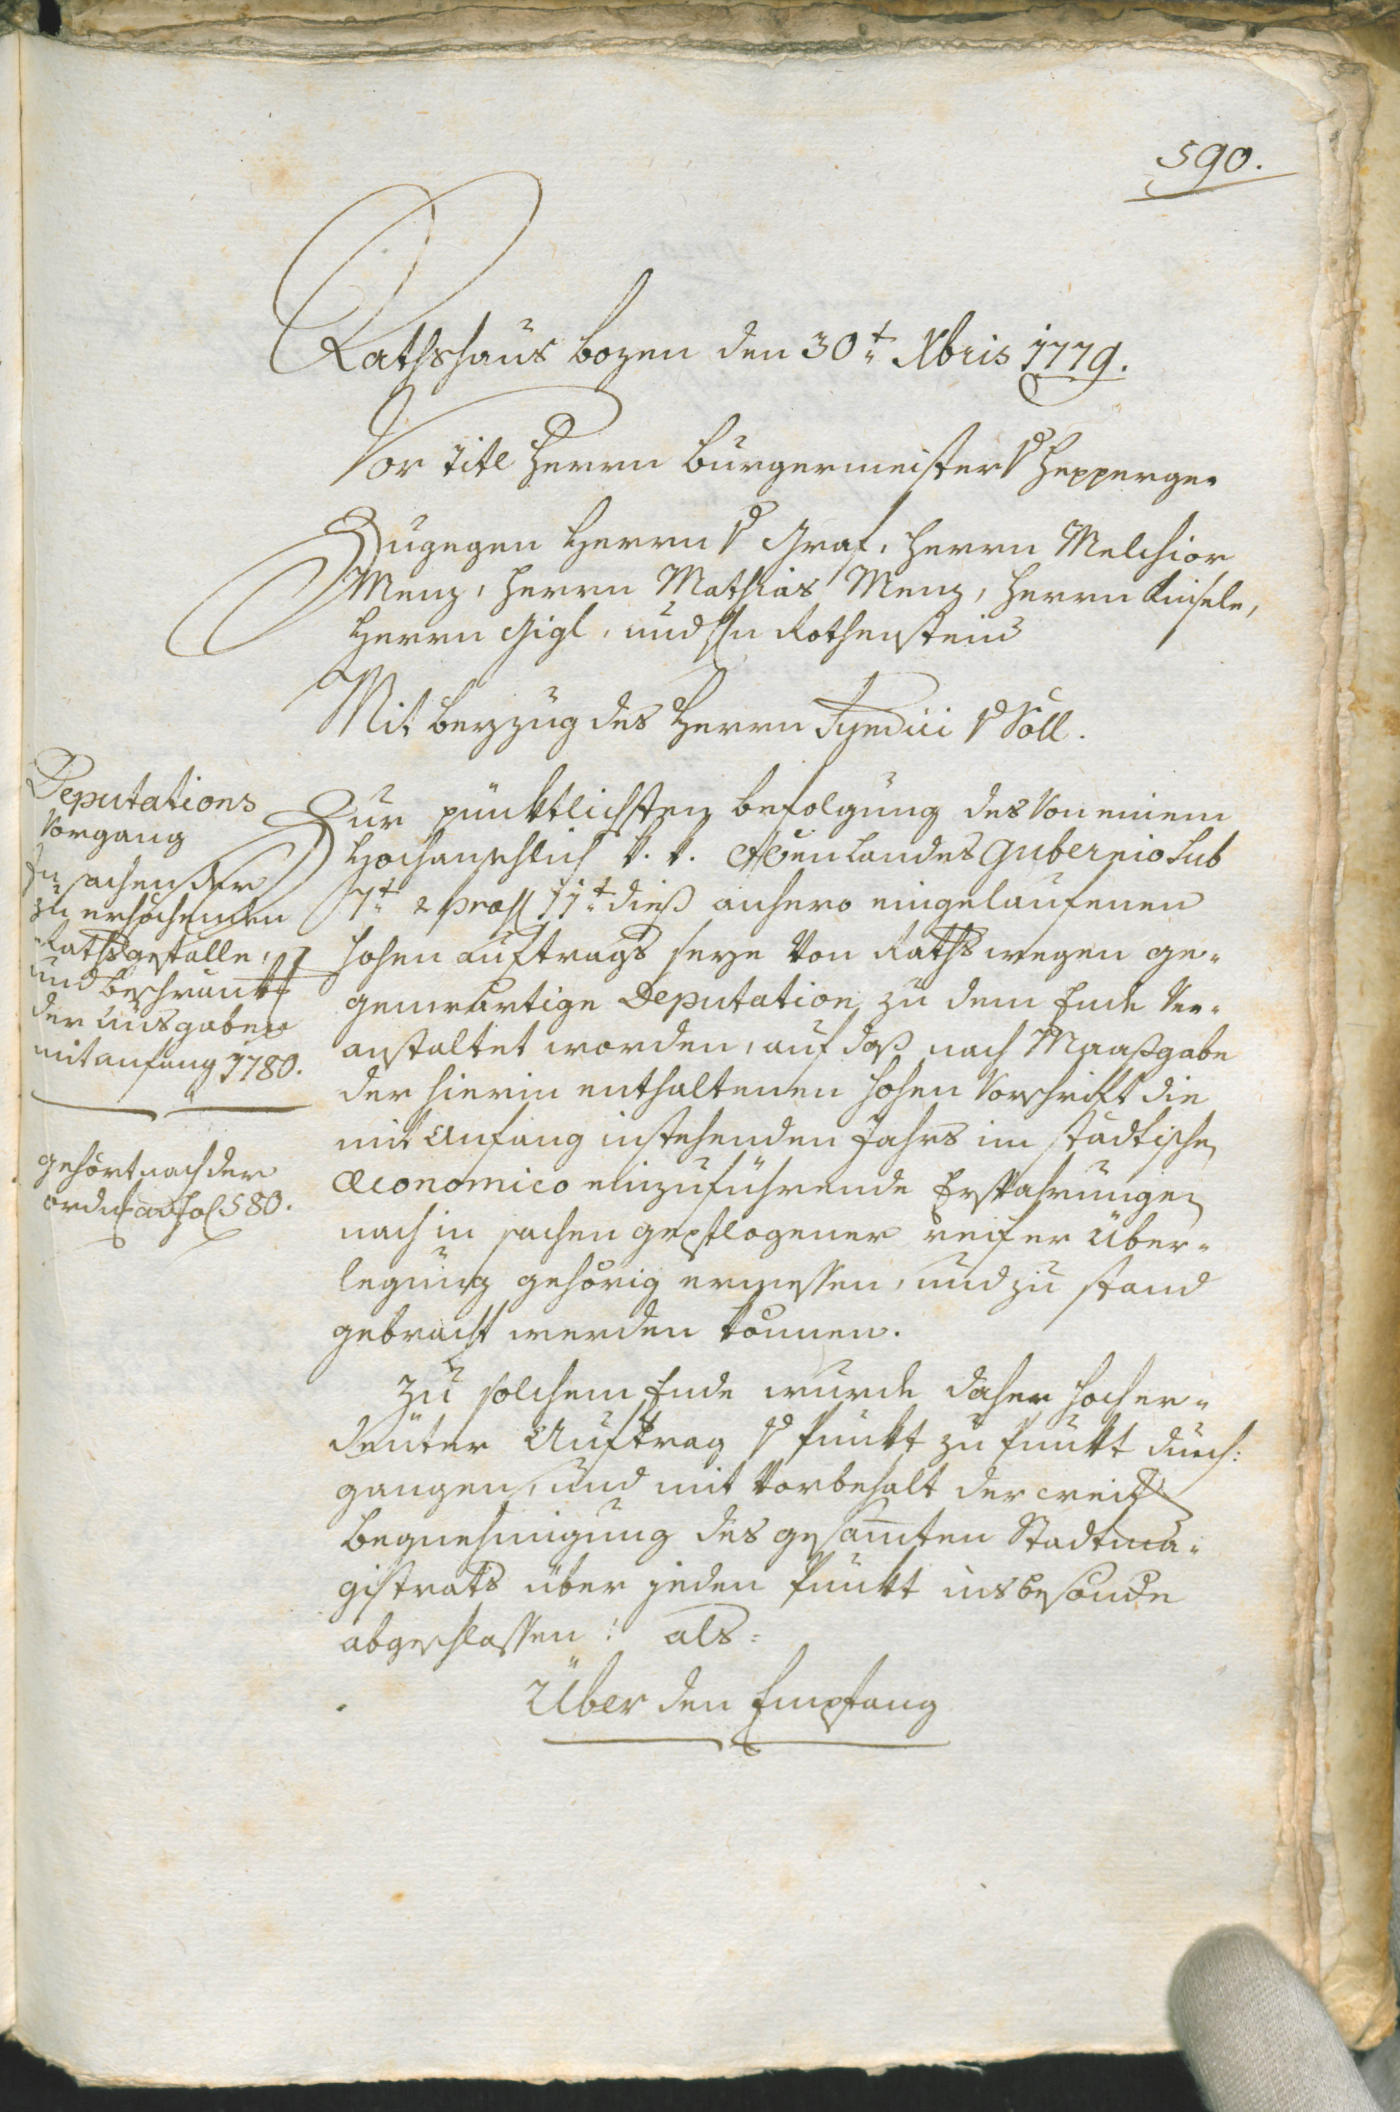 590.
Rathshaus Bozen den 30t. Xbris 1779.
Vor Titl Herrn Burgermeister v Hepperge.
Zugegen Herrn v Graf, Herrn Melchior
Menz, Herrn Mathias Menz, Herrn Kinsele,
Herrn Gigl, und Hn Rothenstein
Mit Beyzug des Herrn Syndici v Söll.
Deputations
Vorgang
in sachen der
zu erhöchenden
Rathsgefälle,
und Beschränk
der Ausgaben
mit anfang 1780.
gehört nach der
ordn ad fol 580.
Zur pünktlichsten Befolgung des von einem
Hochansehlich k. k. OÖen Landes Gubernio sub
7t & pras 11t dieß anhero eingelaufenen
hohen auftrags seye von Raths wegen ge-
genwärtige Deputation zu dem Ende ver-
anstaltet worden, auf daß nach Maaßgabe
der hierin enthaltenen hohen Vorschrift die
mit Anfang instehenden Jahrs im städtischen
Œconomico einzuführende Ersparungen
nach in sachen gepflogener reifer Über-
legung gehörig ermessen, und zu stand
gebracht werden können.
Zu solchem Ende wurde daher hocher-
deuter Auftrag v Punkt zu Punkt durch:
gangen, und mit Vorbehalt der
Begnehmigung des gesamten Stadtma-
gistrats über jeden Punkt insbesonde
abgeschlossen: als:
Über den Empfang